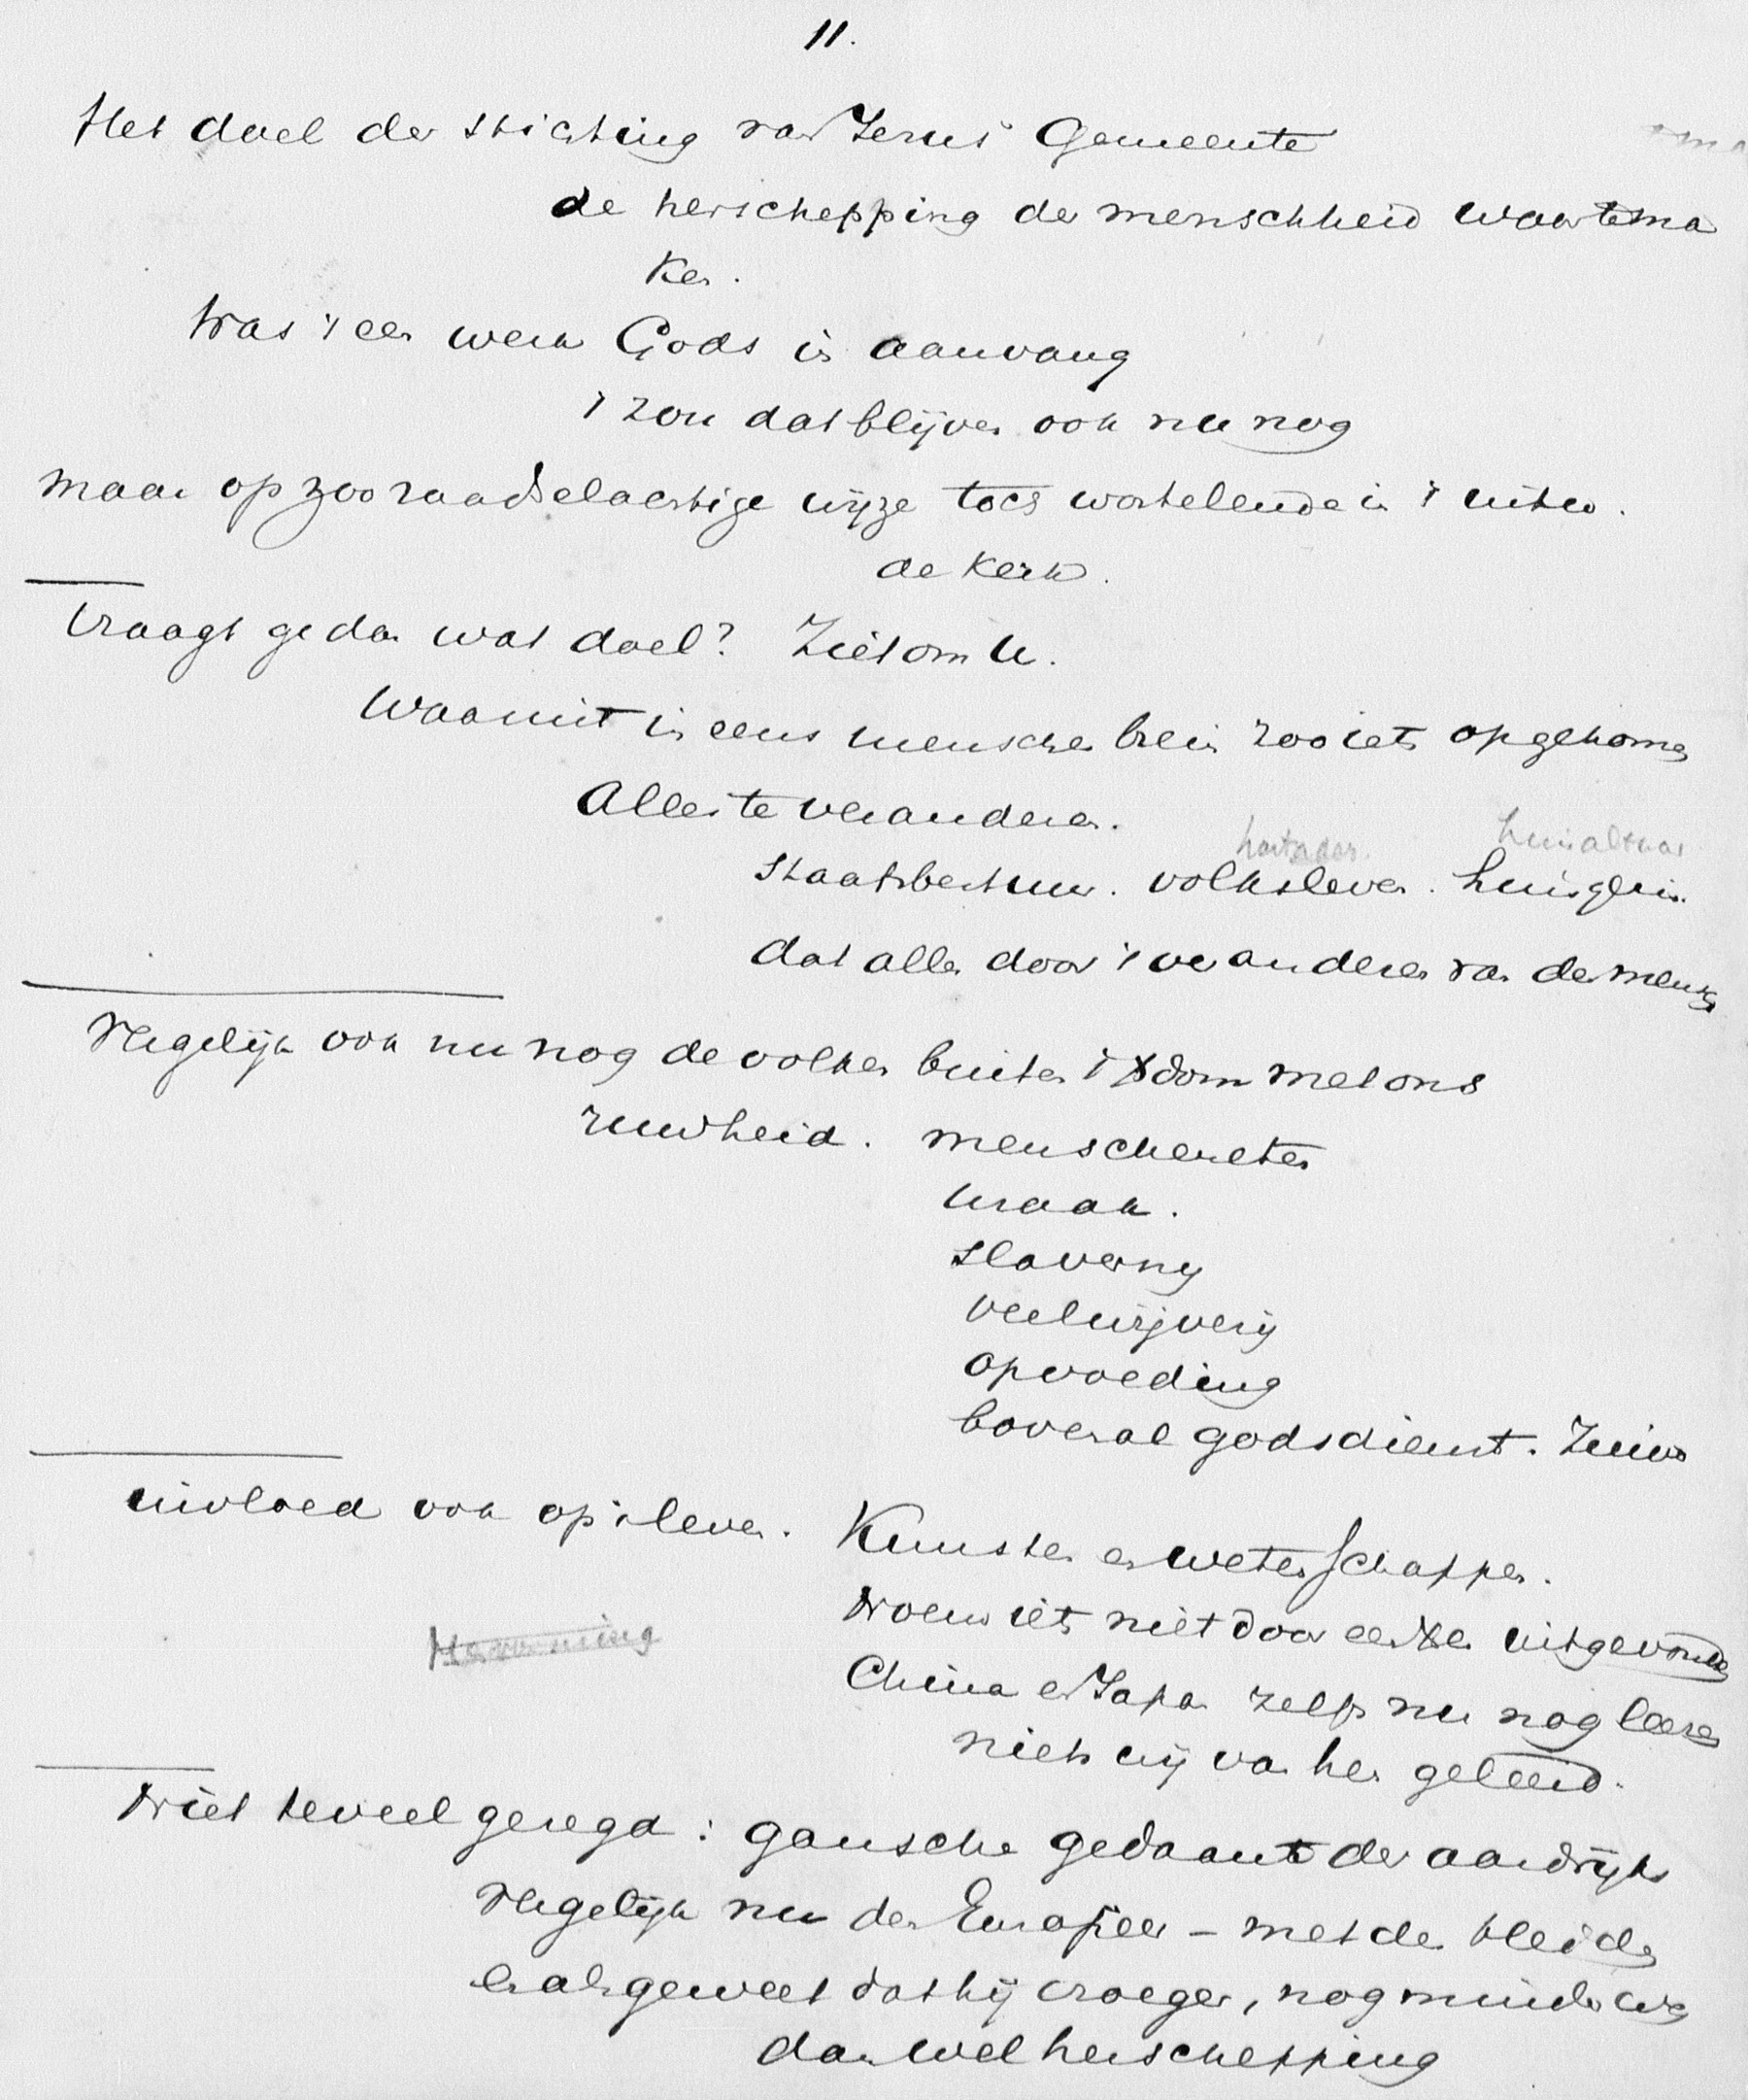 11.
Het doel der stichting van Jezus' Gemeente
de herschepping der menschheid waar te ma
ken.
Was 't een werk Gods in aanvang
't zou dat blijven ook nu nog
maar op zoo raadselachtige wijze toch wortelende in 't
de kerk.
Vraagt ge dan wat doel? Ziet om U.
Waar ooit in eens menschen brein zoo iets opgekomen
Alles te veranderen.
hartader. huisaltaar
Staatsbestuur. volksleven. huisgezin.
dat alles door 't veranderen van den mensch
Vergelijk ook nu nog de volken buiten 't Xdom met ons
ruwheid. menscheneter
wraak.
slaverny
veelwijverij
opvoeding
bovenal godsdienst. Zuiver
invloed ook op 't leven. Kunsten en wetenschappen.
Noem iets niet door een Xen uitgevonden
China en Japan zelfs nu nog leeren
niets wij van hen geleerd.
Niet te veel gezegd: gansche gedaante der aardrijks
Vergelijk nu den Europeer – met den heiden
en als ge weet dat hij vroeger, nog minder was
dan wel herschepping